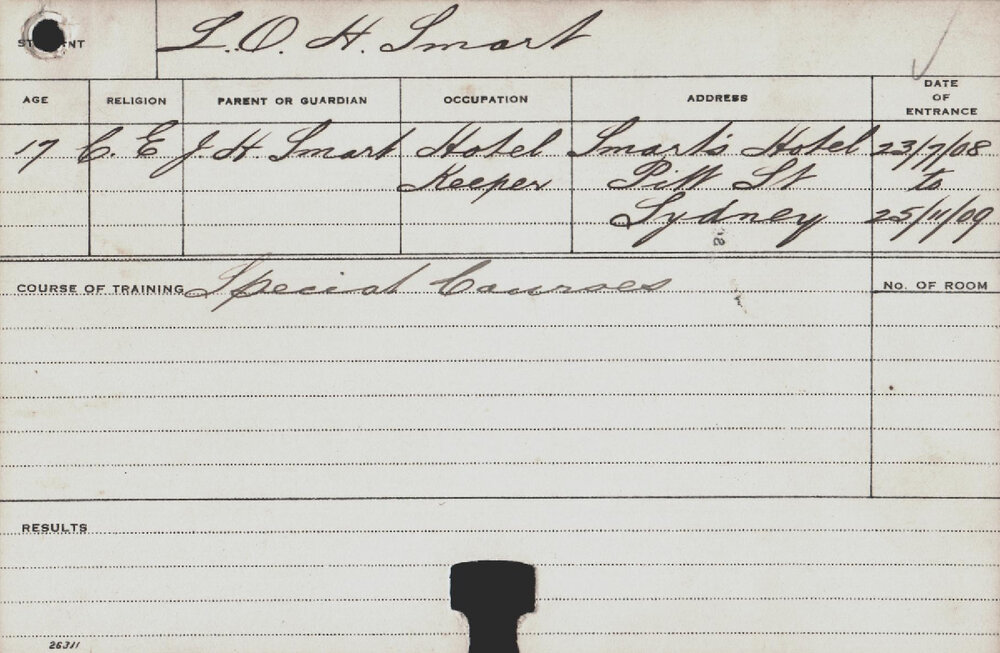 STUDENT L. O. H. Smart
AGE RELIGION PARENT OR GUARDIAN OCCUPATION ADDRESS DATE OF ENTRANCE
17 C. E J. H. Smart Hotel Smart's Hotel 23/7/08
Keeper Pitt St to
Sydney 25/11/09
COURSE OF TRAINING Special Courses No. OF ROOM
RESULTS
26311